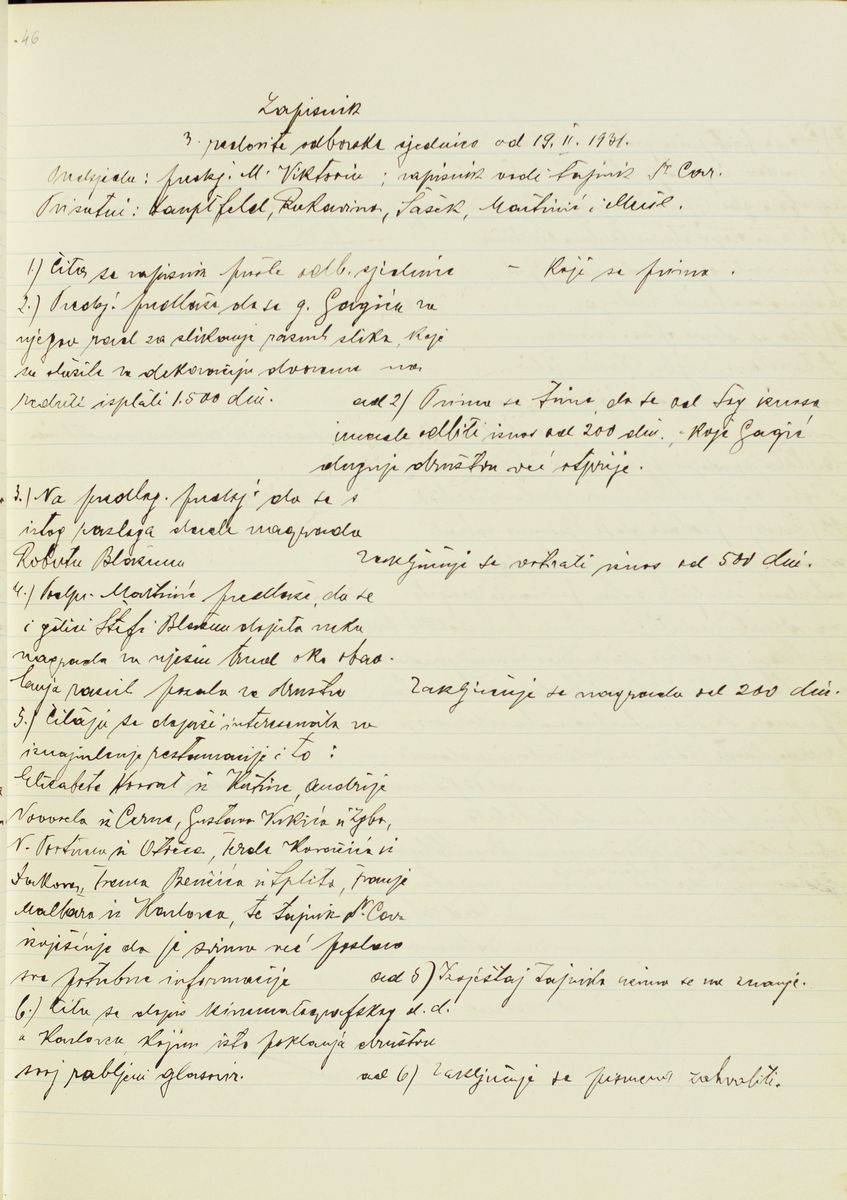 46
Zapisnik
3. redovite odborske sjednice od 19. II. 1931.
predsjeda: predsj. M. Viktorin; zapisnik vodi tajnik Dr Cov.
Prisutni: Hauptfeld, Rukavina, Šašek, Martinić i Mušl.
1.) Čita se zapisnik prošle odb. sjednice — koji se prima.
2.) Predsj. predlaže da se g. Gagiću za
njegov rad za slikanje raznih slika, koje
su služile za dekoraciju dvorane na
reduti isplati 1.500 din.
ad 2) Prima se time, da se od tog iznosa
imade odbiti iznos od 200 din., koje Gagić
duguje društvu već otprije.
3.) Na predlog. predsj. da se s
istog razloga dade nagrada
Robertu Blažunu
zaključuje se votirati iznos od 500 din.
4.) Podpr. Martinić predlaže, da se
i gđici Štefi Blažun dopita neka
nagrada za njezin trud oko obav-
ljanja raznih posala za društvo
Zaključuje se nagrada od 200 din.
5.) Čitaju se dopisi interesenata za
iznajmljenje restauracije i to:
Elizabete Horvat iz Kutine, Andrije
iz Cerna, Gustava iz Zgba,
N. iz Otočca, Ferde Koračića iz
, Frana Benčića iz Splita, Franje
iz Karlovca, te tajnik Dr Cov
izvješćuje da je svima već poslao
sve potrebne informacije
ad 5) Izvještaj tajnika uzima se na znanje.
6.) Čita se dopis kinematografskog d.d.
u Karlovcu kojim isto poklanja društvu
svoj rabljeni glasovir.
ad 6) zaključuje se pismeno zahvaliti.